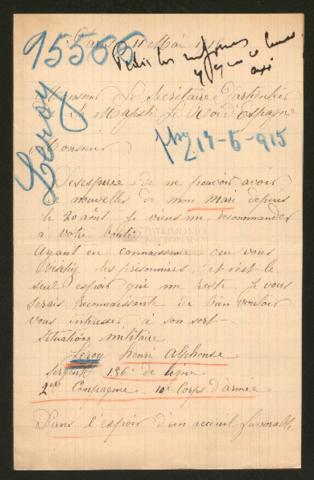 95555
Paris 11 Mai
Leroy
Monsieur le Secrétaire Particulier
de sa Majesté le Roi d'Espagne
14-6-915
Monsieur
Desesperée de ne pouvoir avoir
de nouvelles de mon Mari depuis
le 20 août je viens me recommander
à votre bonté
PATRIMONIO
NACIONAL
Ayant eu connaissance que vous
les prisonniers, et c'est le
seul espoir qui me reste. Je vous
serais reconnaissante de bien vouloir
vous intéresser à son sort
situation militaire
Leroy Henri Alphonse
sergent 136e de ligne
2eme Compagnie 10e Corps d'armée
Dans l'espoir d'un accueil favorable,